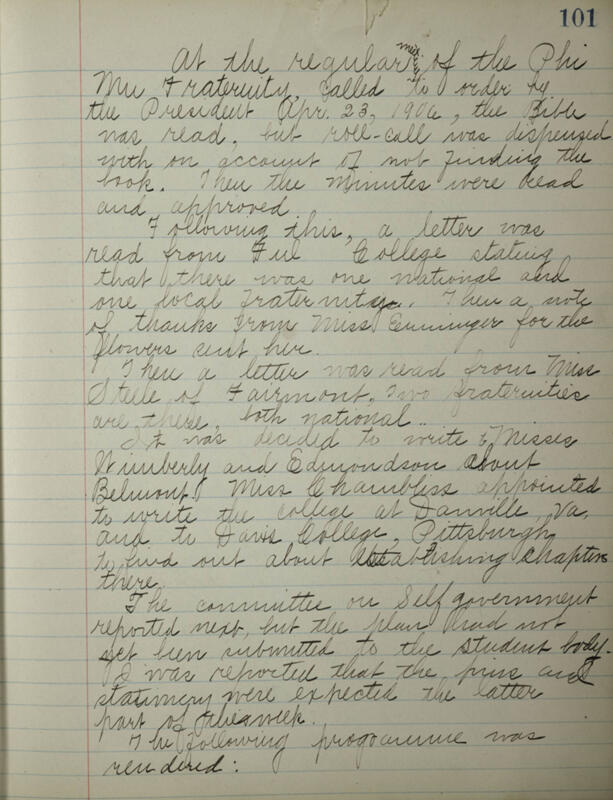 101
At the regular meeting of the Phi
Mu Fraternity, called to order by
the President Apr. 23, 1906, the Bible
was read, but roll-call was dispensed
with on account of not finding the
book. Then the minutes were read
and approved.
Following this, a letter was
read from College stating
that there was one national and
one local Fraternity. Then a note
of thanks from Miss for the
flowers sent her.
Then a letter was read from Miss
Steele of Fairmont. Two fraternities
are there, both national.
It was decided to write to Misses
Wimberly and Edmondson about
Belmont. Miss Chambliss appointed
to write the college at Danville, Va.
and to Davis College, Pittsburgh
to find out about establishing chapters
there.
The committee on Self government
reported next, but the plan had not
yet been submitted to the student body.
I was reported that the pins and
stationery were expected the latter
part of the week.
The following programme was
rendered: